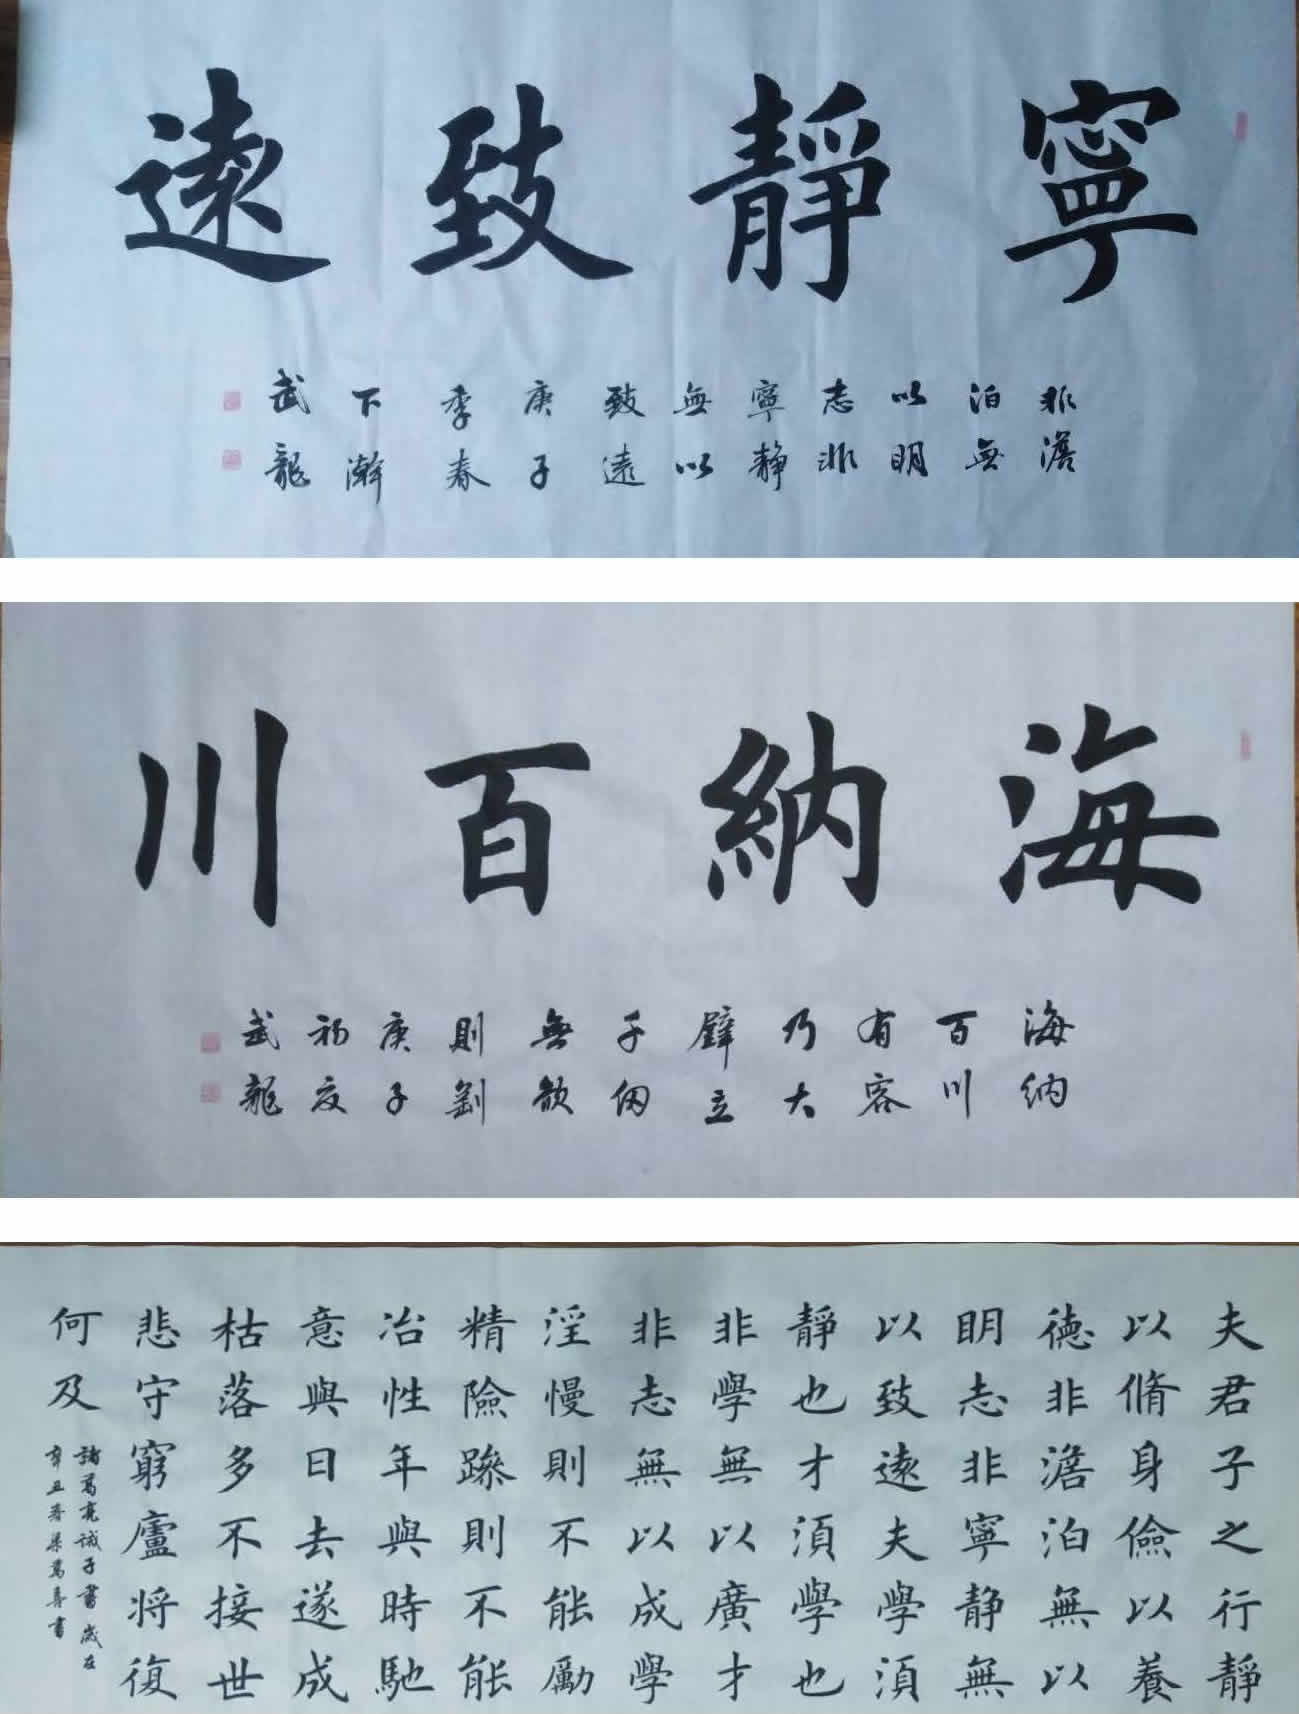 寧靜致遠
非澹
泊無
以明
志非
寧靜
無以
致遠
庚子
季春
下澣
武龍
海納百川
海納
百川
有容
乃大
壁立
千仞
無欲
則剛
庚子
初夏
武龍
夫君子之行靜
以脩身儉以養
德非澹泊無以
明志非寧靜無
以致遠夫學須
靜也才須學也
非學無以廣才
非志無以成學
淫慢則不能勵
精險躁則不能
冶性年與時馳
意與日去遂成
枯落多不接世
悲守窮廬將復
何及
諸葛亮誡子書 歲在
辛丑春梁萬喜書